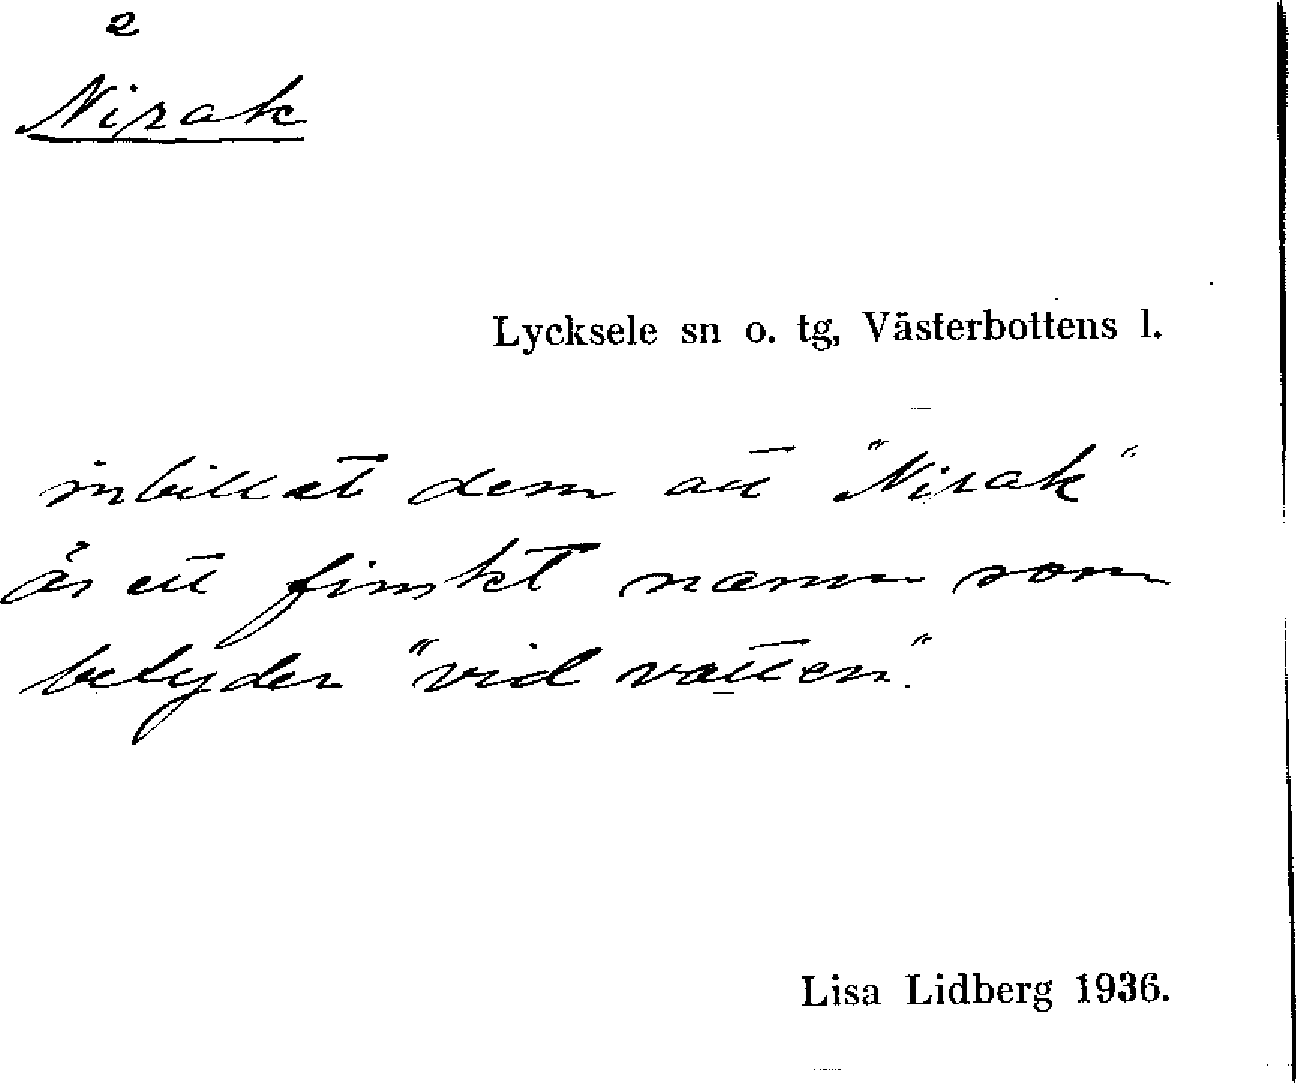 2
Nirak
Lycksele sn o. tg, Västerbottens l.
inbillat dem att "Nirak"
är ett finskt namn som
betyder "vid vatten".
Lisa Lidberg 1936.